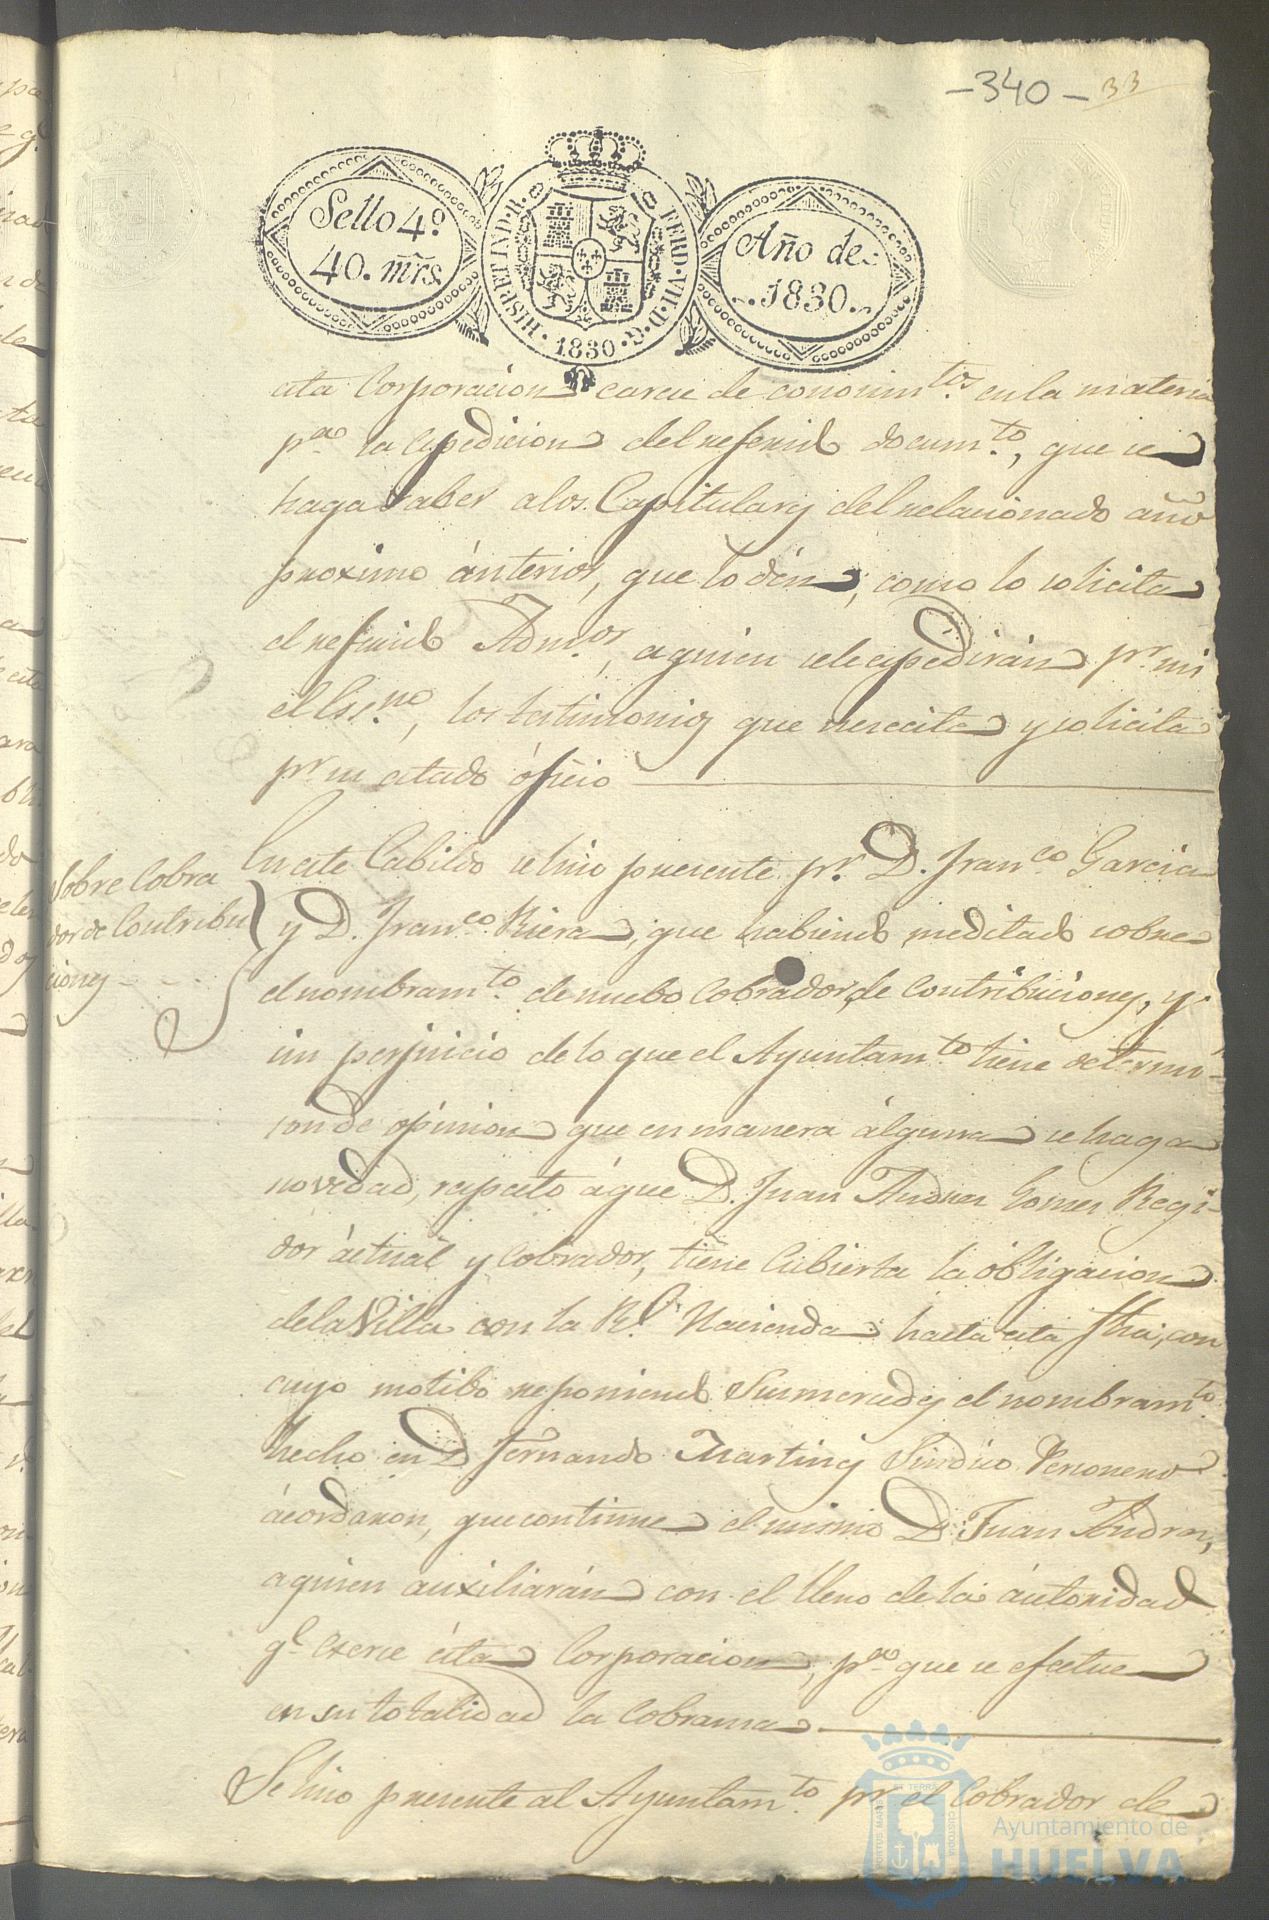 -340- 33
Sello 4º
40. mrs.
HISP. ET IND. R. FERD. VII. D. G. 1830
Año de
1830.
esta Corporacion carece de conocim.tos en la materia
p.a la espedicion del referido docum.to, que se
haga saber a los Capitulares del relacionado año
proximo ánterior, que lo dén, como lo solicita
el referido Adm.or, a quien se le espedirán p.r mi
el Ess.no, los testimonios que necesita y solicita
p.r su citado óficio
Sobre Cobra
dor de Contribu
ciones
En este Cabildo se hizo presente p.r D. Fran.co Garcia
y D. Fran.co Riera, que habiendo meditado sobre
el nombram.to de nuebo Cobrador de Contribuciones, y
sin perjuicio de lo que el Ayuntam.to tiene determin.o
son de opinion que en manera álguna se haga
novedad, respecto á que D. Juan Andres Gomez Regi-
dor áctual y Cobrador, tiene Cubierta la obligacion
de la Villa con la R.l Hacienda hasta esta fha; con
cuyo motibo reponiendo Sus mercedes el nombram.to
hecho en D. Fernando Martines Sindico Personero
ácordaron, que continue el mismo D. Juan Andres,
a quien auxiliarán con el lleno de la áutoridad
q.e exerce ésta Corporacion, p.a que se efectue
en su totalidad la Cobranza
Se hizo presente al Ayuntam.to p.r el Cobrador de
PORTUS MARIS ET TERRÆ CUSTODIA
Ayuntamiento de
HUELVA